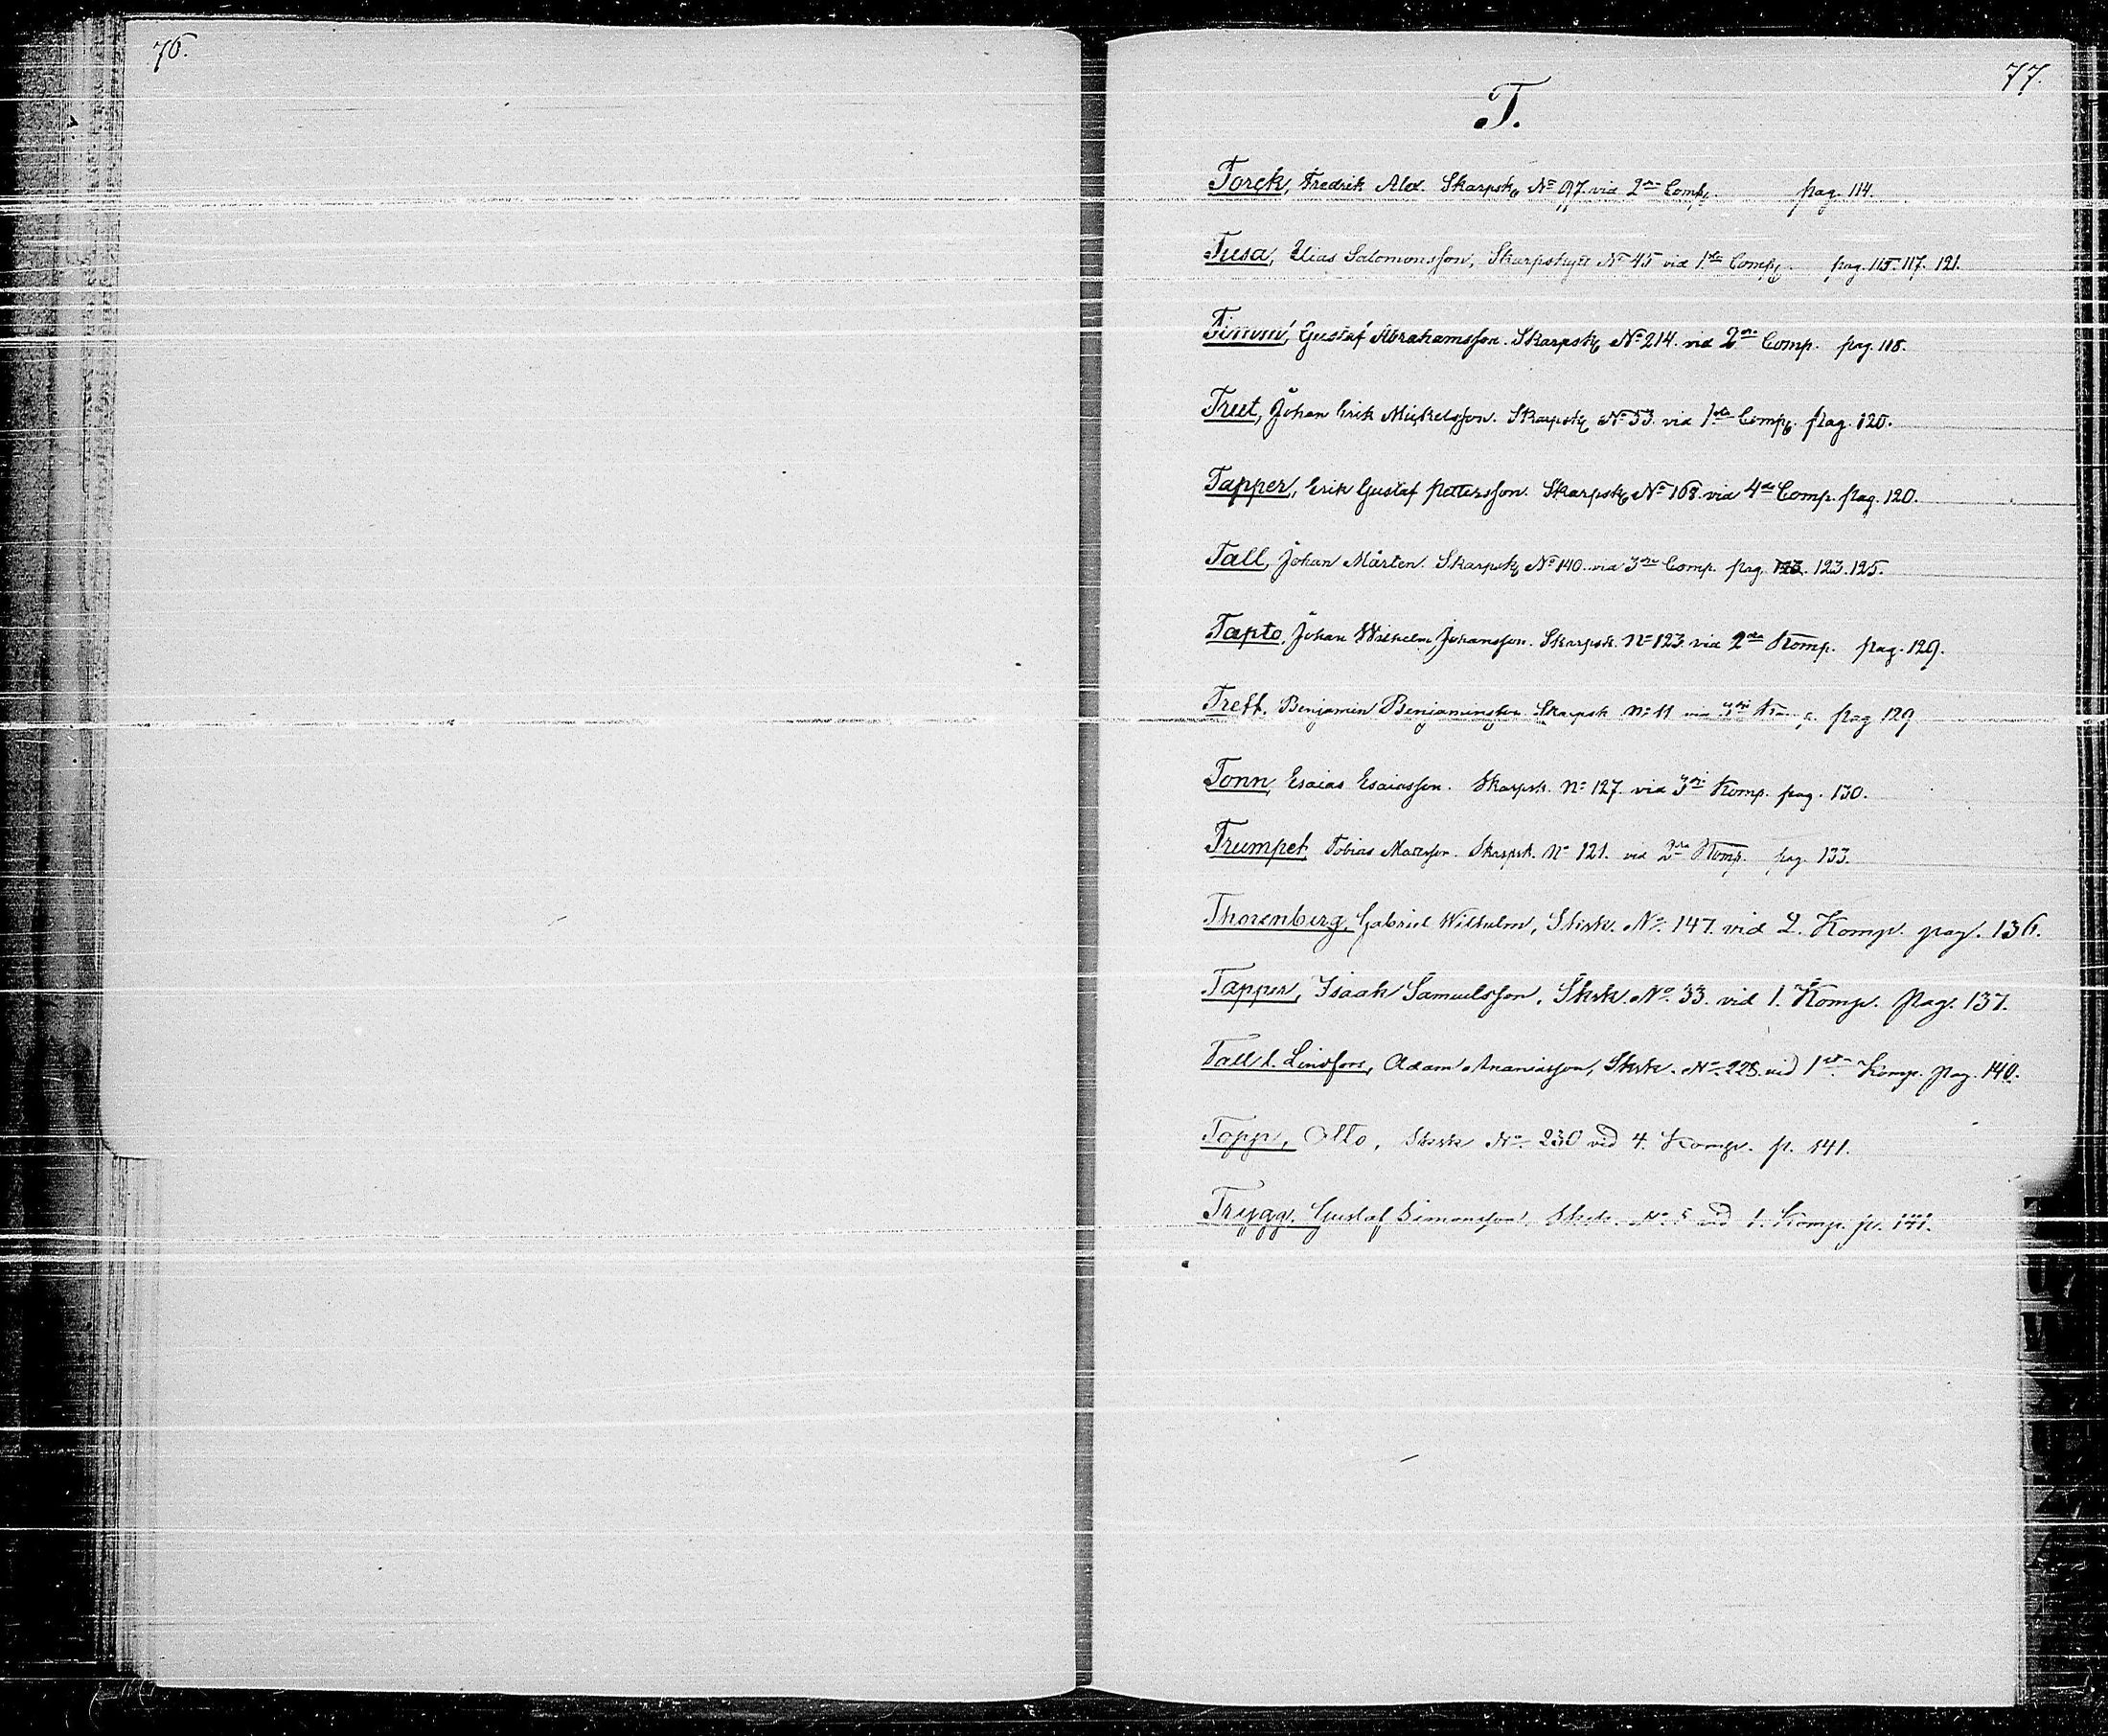 76.
77.
T.
Torck, Fredrik Alex. Skarpsk. No 97. vid 2ra Comp. pag. 114.
Tusa, Elias Salomonsson, Skarpskytt No 45 vid 1sta Comp. pag. 115. 117. 121.
Timm, Gustaf Abrahamsson. Skarpsk. No 214. vid 2ra Comp. pag. 118.
Treet, Johan Erik Mickelsson. Skarpsk. No 53. vid 1sta Comp. pag. 120.
Tapper, Erik Gustaf Pettersson. Skarpsk. No 168. vid 4de Comp. pag. 120.
Tall, Johan Mårten. Skarpsk. No 140. vid 3dje Comp. pag. 123. 125.
Tapto, Johan Wilhelm Johansson. Skarpsk. No 123. vid 2dra Komp. pag. 129.
Treff. Benjamin Benjaminsson Skarpsk No 11 vid 3dje pag 129
Tonn, Esaias Esaiasson. Skarpsk. No 127. vid 3dje Komp. pag. 130.
Trumpet, Tobias Matsson. Skarpsk. No 121. vid 2ra Komp. pag. 133.
Thorenberg, Gabriel Wilhelm, Sksk. No. 147. vid 2. Komp. pag. 136.
Tapper, Isaak Samuelsson, Sksk. No. 33. vid 1. Komp. Pag. 137.
Tall l. Lindfors, Adam Ananiasson, Sksk. No. 228. vid 1sta Komp. pag. 140.
Topp, Otto, Sksk No. 230 vid 4. Komp. p. 141.
Trygg. Gustaf Simonsson, Sksk. No. 5 vid 1. Komp. p. 141.